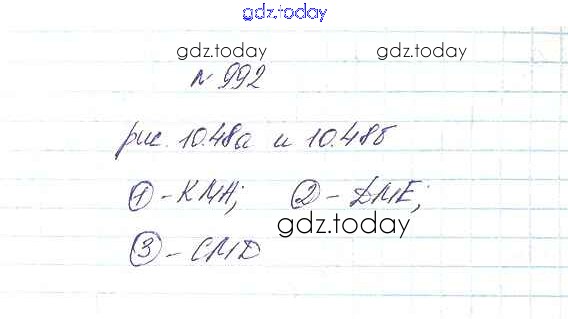 gdz.today
gdz.today gdz.today
№992
рис. 10.48а и 10.48б
①-KMA; ②-DME;
gdz.today
③-CMD